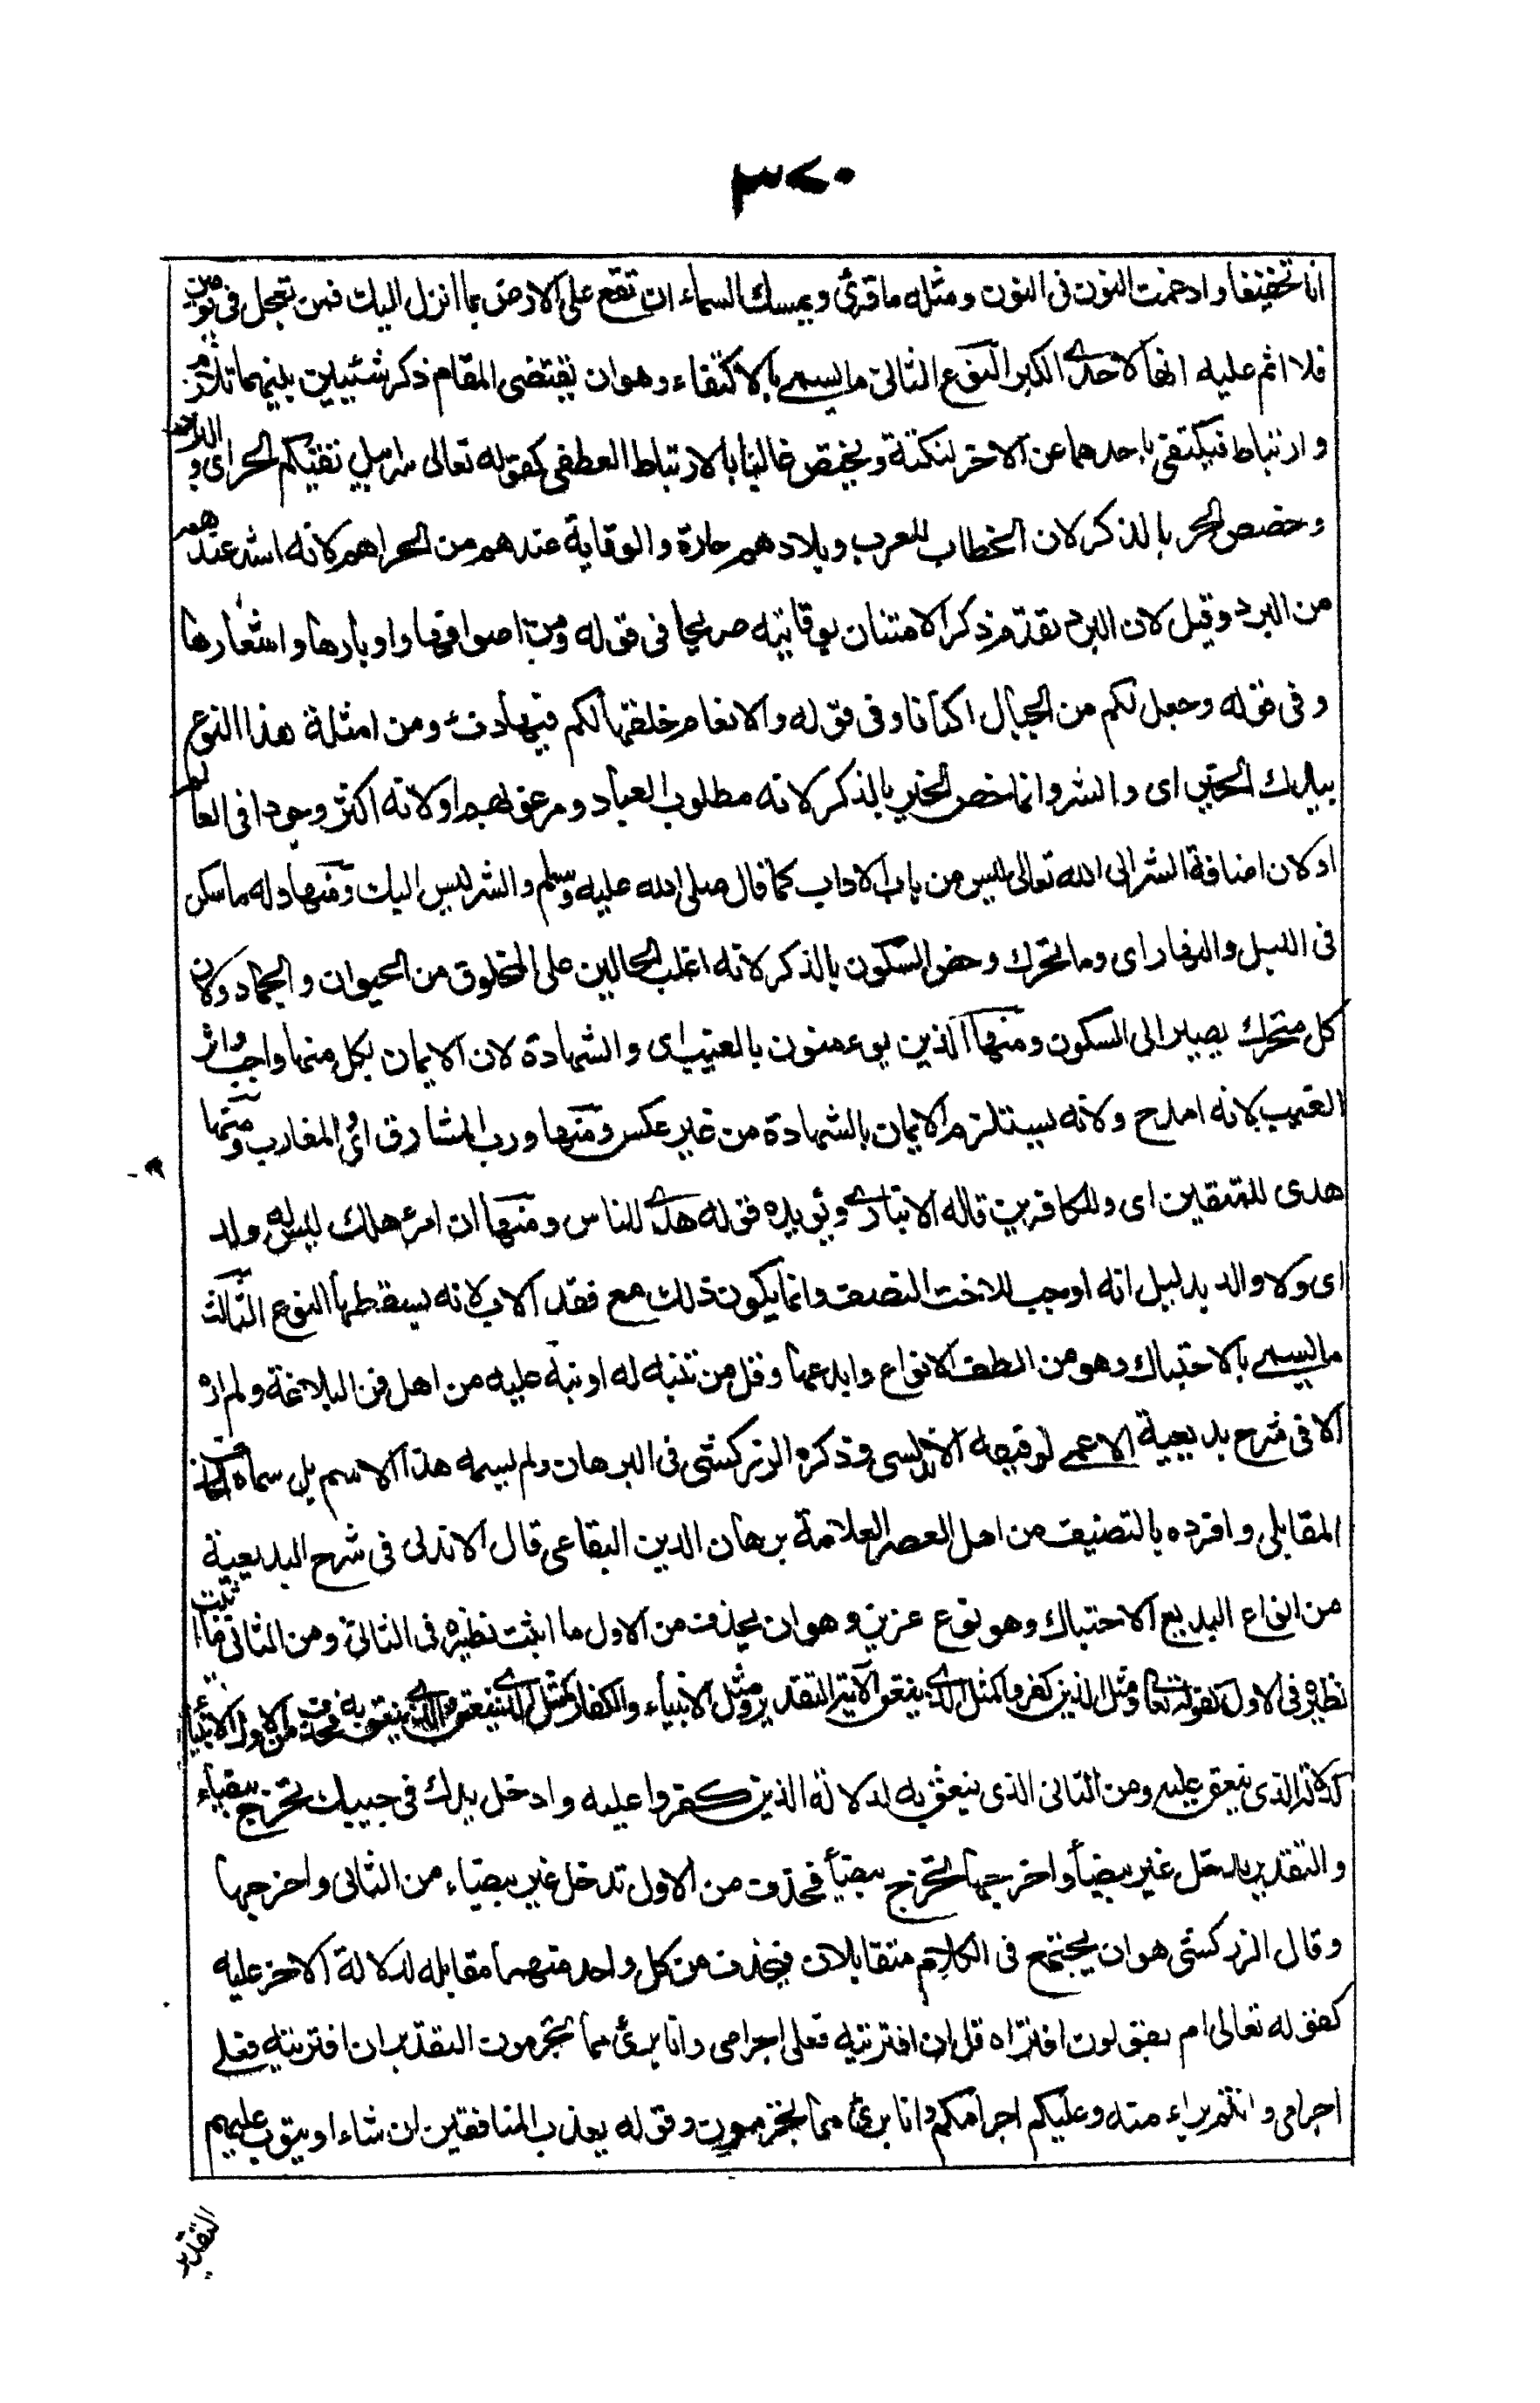 ٣٧٠
انا تخفيفا وادغمت النون فى النون ومثله ما قرئ ويمسك السماء ان تقع على الارض بما انزل اليك فمن تعجل فى يومين
فلا اثم عليه انها لاحدى الكبر النوع الثانى ما يسمى بالاكتفاء وهو ان يقتضى المقام ذكر شيئين بينهما تلازم
وارتباط فيكتفى باحدهما عن الاخر لنكتة ويختص غالبا بالارتباط العطفى كقوله تعالى سرابيل تقيكم الحر اى والبرد
وخصص الحر بالذكر لان الخطاب للعرب وبلادهم حارة والوقاية عندهم من الحر اهم لانه اشد عندهم
من البرد وقيل لان البرد تقدم ذكر الامتنان بوقايته صريحا فى قوله ومن اصوافها واوبارها واشعارها
وفى قوله وجعل لكم من الجبال اكنانا وفى قوله والانعام خلقها لكم فيها دفء ومن امثلة هذا النوع
بيدك الخير اى والشر وانما خص الخير بالذكر لانه مطلوب العباد ومرغوبهم او لانه اكثر وجودا فى العالم
او لان اضافة الشر الى الله تعالى ليس من باب الاداب كما قال صلى الله عليه وسلم والشر ليس اليك ومنها وله ما سكن
فى الليل والنهار اى وما تحرك وخص السكون بالذكر لانه اغلب الحالين على المخلوق من الحيوان والجماد ولان
كل متحرك يصير الى السكون ومنها الذين يوءمنون بالغيب اى والشهادة لان الايمان بكل منهما واجب واثر
الغيب لانه امدح ولانه يستلزم الايمان بالشهادة من غير عكس ومنها ورب المشارق اى والمغارب ومنها
هدى للمتقين اى وللكافرين قاله الانبارى ويؤيده قوله هدى للناس ومنها ان امرء هلك ليس له ولد
اى ولا والد بدليل انه اوجب للاخت النصف وانما يكون ذلك مع فقد الاب لانه يسقطها النوع الثالث
ما يسمى بالاحتباك وهو من الطف الانواع وابدعها وقل من تنبه له او نبه عليه من اهل فن البلاغة ولم اره
الا فى شرح بديعية الاعمى لرفيقه الاندلسى وذكره الزركشى فى البرهان ولم يسمه هذا الاسم بل سماه الحذف
المقابلى وافرده بالتصنيف من اهل العصر العلامة برهان الدين البقاعى قال الاندلى فى شرح البديعية
من انواع البديع الاحتباك وهو نوع عزيز وهو ان يحذف من الاول ما اثبت نظيره فى الثانى ومن الثانى ما اثبت
نظيره فى الاول كقوله تعا ومثل الذين كفروا كمثل الذى ينعق الآية التقدير ومثل الانبياء والكفار كمثل الذى ينعق والذى ينعق به فحذف من الاول الانبياء
لدلالة الذى ينعق عليه ومن الثانى الذى ينعق به لدلالة الذين كفروا عليه وادخل يدك فى جيبك تخرج بيضاء
والتقدير تدخل غير بيضاء واخرجها تخرج بيضاء فحذف من الاول تدخل غير بيضاء ومن الثانى واخرجها
وقال الزركشى هو ان يجتمع فى الكلام متقابلان فيحذف من كل واحد منهما مقابله لدلالة الاخر عليه
كقوله تعالى ام يقولون افتراه قل ان افتريته فعلى اجرامى وانا برئ مما تجرمون التقدير ان افتريته فعلى
اجرامى وانتم براء منه وعليكم اجرامكم وانا برئ مما تجرمون وقوله يعذب المنافقين ان شاء او يتوب عليهم
التقدير